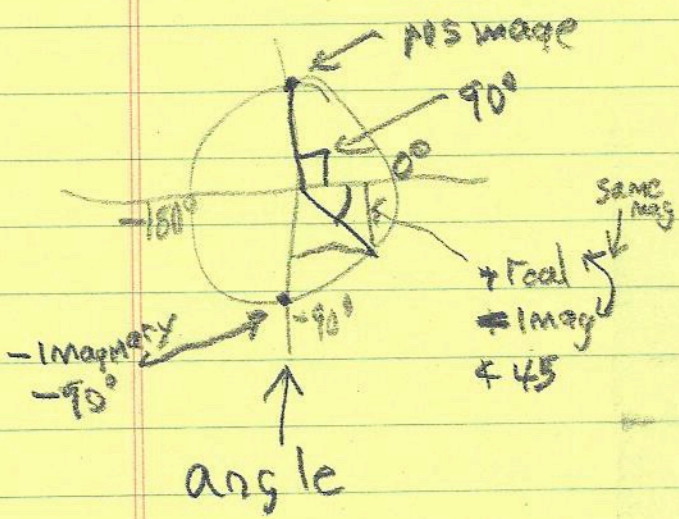 pos image
90°
0°
-180°
same
mag
+real
-imag
∢ 45
-90°
-Imaginary
-90°
angle